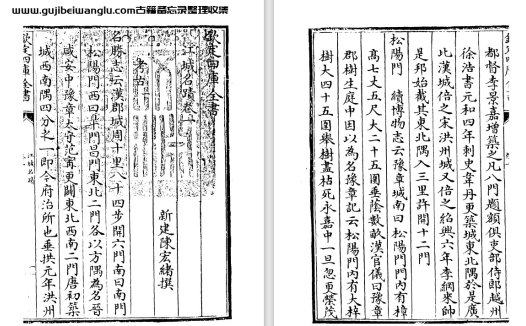 www.gujibeiwanglu.com古籍备忘录整理收集
欽定四庫全書
江城名蹟卷一
新建陳宏緒撰
考古一
名勝志云漢郡城周十里八十四步開六門南曰南門
松陽門西曰皋門昌門東北二門各以方隅為名晉
咸安中豫章太守范甯更闢東北西南二門唐初築
城西南隅四分之一即今府治所也垂拱元年洪州
欽定四庫全書
江城名蹟
欽定四庫全書
都督李景嘉增築之凡八門題額俱吏部侍郎越
徐浩書元和四年刺史韋丹更築城東北隅於是廣
比漢城倍之宋洪州城又倍之紹興六年李綱來帥
是邦始截其東北隅入三里許開十二門
松陽門 續博物志云豫章城南曰松陽門門內有樟
高七丈五尺大二十五圍垂蔭數畝漢官儀曰豫章
郡樹生庭中因以為名豫章記云松陽門內有大梓
樹大四十五圍舉樹盡枯死永嘉中一旦忽更榮茂